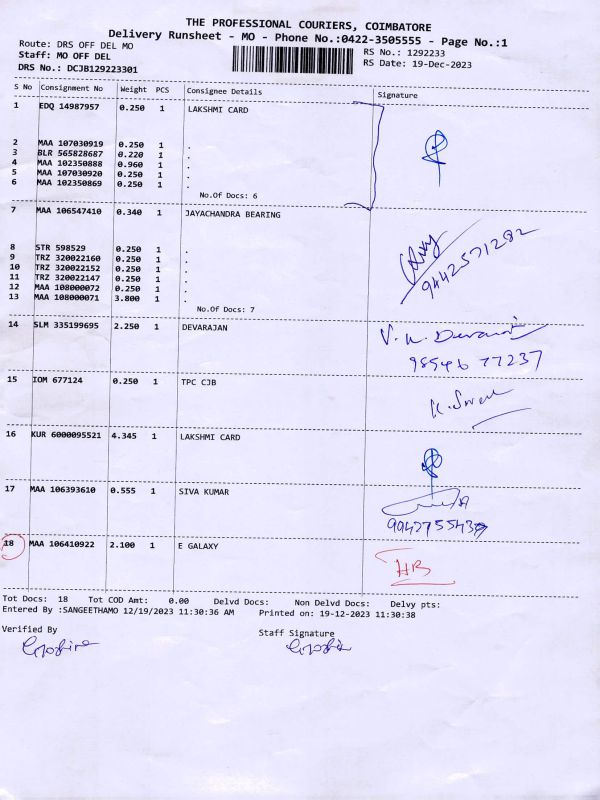 THE PROFESSIONAL COURIERS, COIMBATORE
Delivery Runsheet - MO - Phone No.:0422-3505555 - Page No.:1
Route: DRS OFF DEL MO
RS No.: 1292233
Staff: MO OFF DEL
RS Date: 19-Dec-2023
DRS No.: DCJB129223301
S No Consignment No Weight PCS Consignee Details Signature
1 EDQ 14987957 0.250 1 LAKSHMI CARD
2 MAA 107030919 0.250 1 .
3 BLR 565828687 0.220 1 .
4 MAA 102350888 0.960 1 .
5 MAA 107030920 0.250 1 .
6 MAA 102350869 0.250 1 .
No.Of Docs: 6
7 MAA 106547410 0.340 1 JAYACHANDRA BEARING
8 STR 598529 0.250 1 .
9 TRZ 320022160 0.250 1 .
10 TRZ 320022152 0.250 1 .
11 TRZ 320022147 0.250 1 .
12 MAA 108000072 0.250 1 .
13 MAA 108000071 3.800 1 .
9442571282
No.Of Docs: 7
14 SLM 335199695 2.250 1 DEVARAJAN
77237
15 IOM 677124 0.250 1 TPC CJB
16 KUR 6000095521 4.345 1 LAKSHMI CARD
17 MAA 106393610 0.555 1 SIVA KUMAR
18 MAA 106410922 2.100 1 E GALAXY
HB
Tot Docs: 18 Tot COD Amt: 0.00 Delvd Docs: Non Delvd Docs: Delvy pts:
Entered By :SANGEETHAMO 12/19/2023 11:30:36 AM Printed on: 19-12-2023 11:30:38
Verified By
Staff Signature